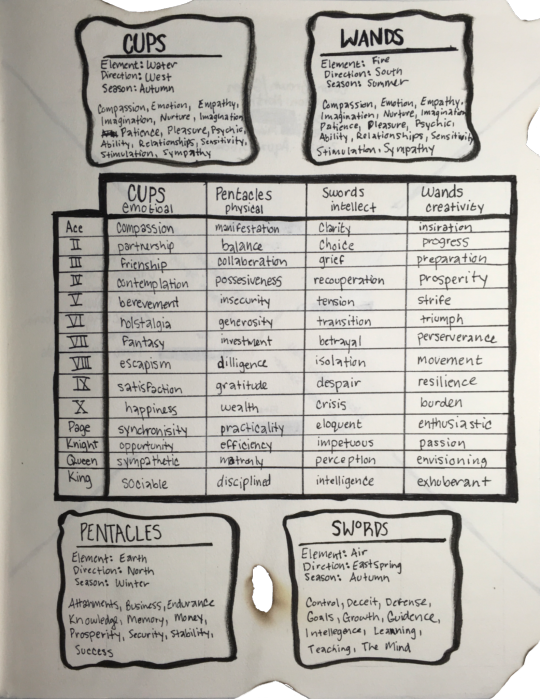 CUPS
Element: Water
Direction: West
Season: Autumn
Compassion, Emotion, Empathy,
Imagination, Nurture, Imagination
Patience, Pleasure, Psychic,
Ability, Relationships, Sensitivity,
Stimulation, Sympathy
WANDS
Element: Fire
Direction: South
Season: Summer
Compassion, Emotion, Empathy,
Imagination, Nurture, Imagination
Patience, Pleasure, Psychic,
Ability, Relationships, Sensitivity
Stimulation, Sympathy
CUPS Pentacles Swords Wands
emotical physical intellect creativity
Ace compassion manifestation Clarity insiration
II partnership balance Choice progress
III frienship collaboration grief preparation
IV contemplation possesiveness recouperation Prosperity
V berevement insecurity tension strife
VI nolstalgia generosity transition triumph
VII Fantasy investment betrayal perserverance
VIII escapism dilligence isolation movement
IX satisfaction gratitude despair resilience
X happiness wealth Crisis burden
Page synchronisity practicality eloquent enthusiastic
Knight opportunity efficiency impetuous passion
Queen sympathetic matronly perception envisioning
King sociable disciplined intelligence exhuberant
PENTACLES
Element: Earth
Direction: North
Season: Winter
Business, Endurance
Knowledge, Memory, Money,
Prosperity, Security, Stability,
Success
SWORDS
Element: Air
Direction: East Spring
Season: Autumn
Control, Deceit, Defense,
Goals, Growth, Guidence,
Intellegence, Learning,
Teaching, The Mind